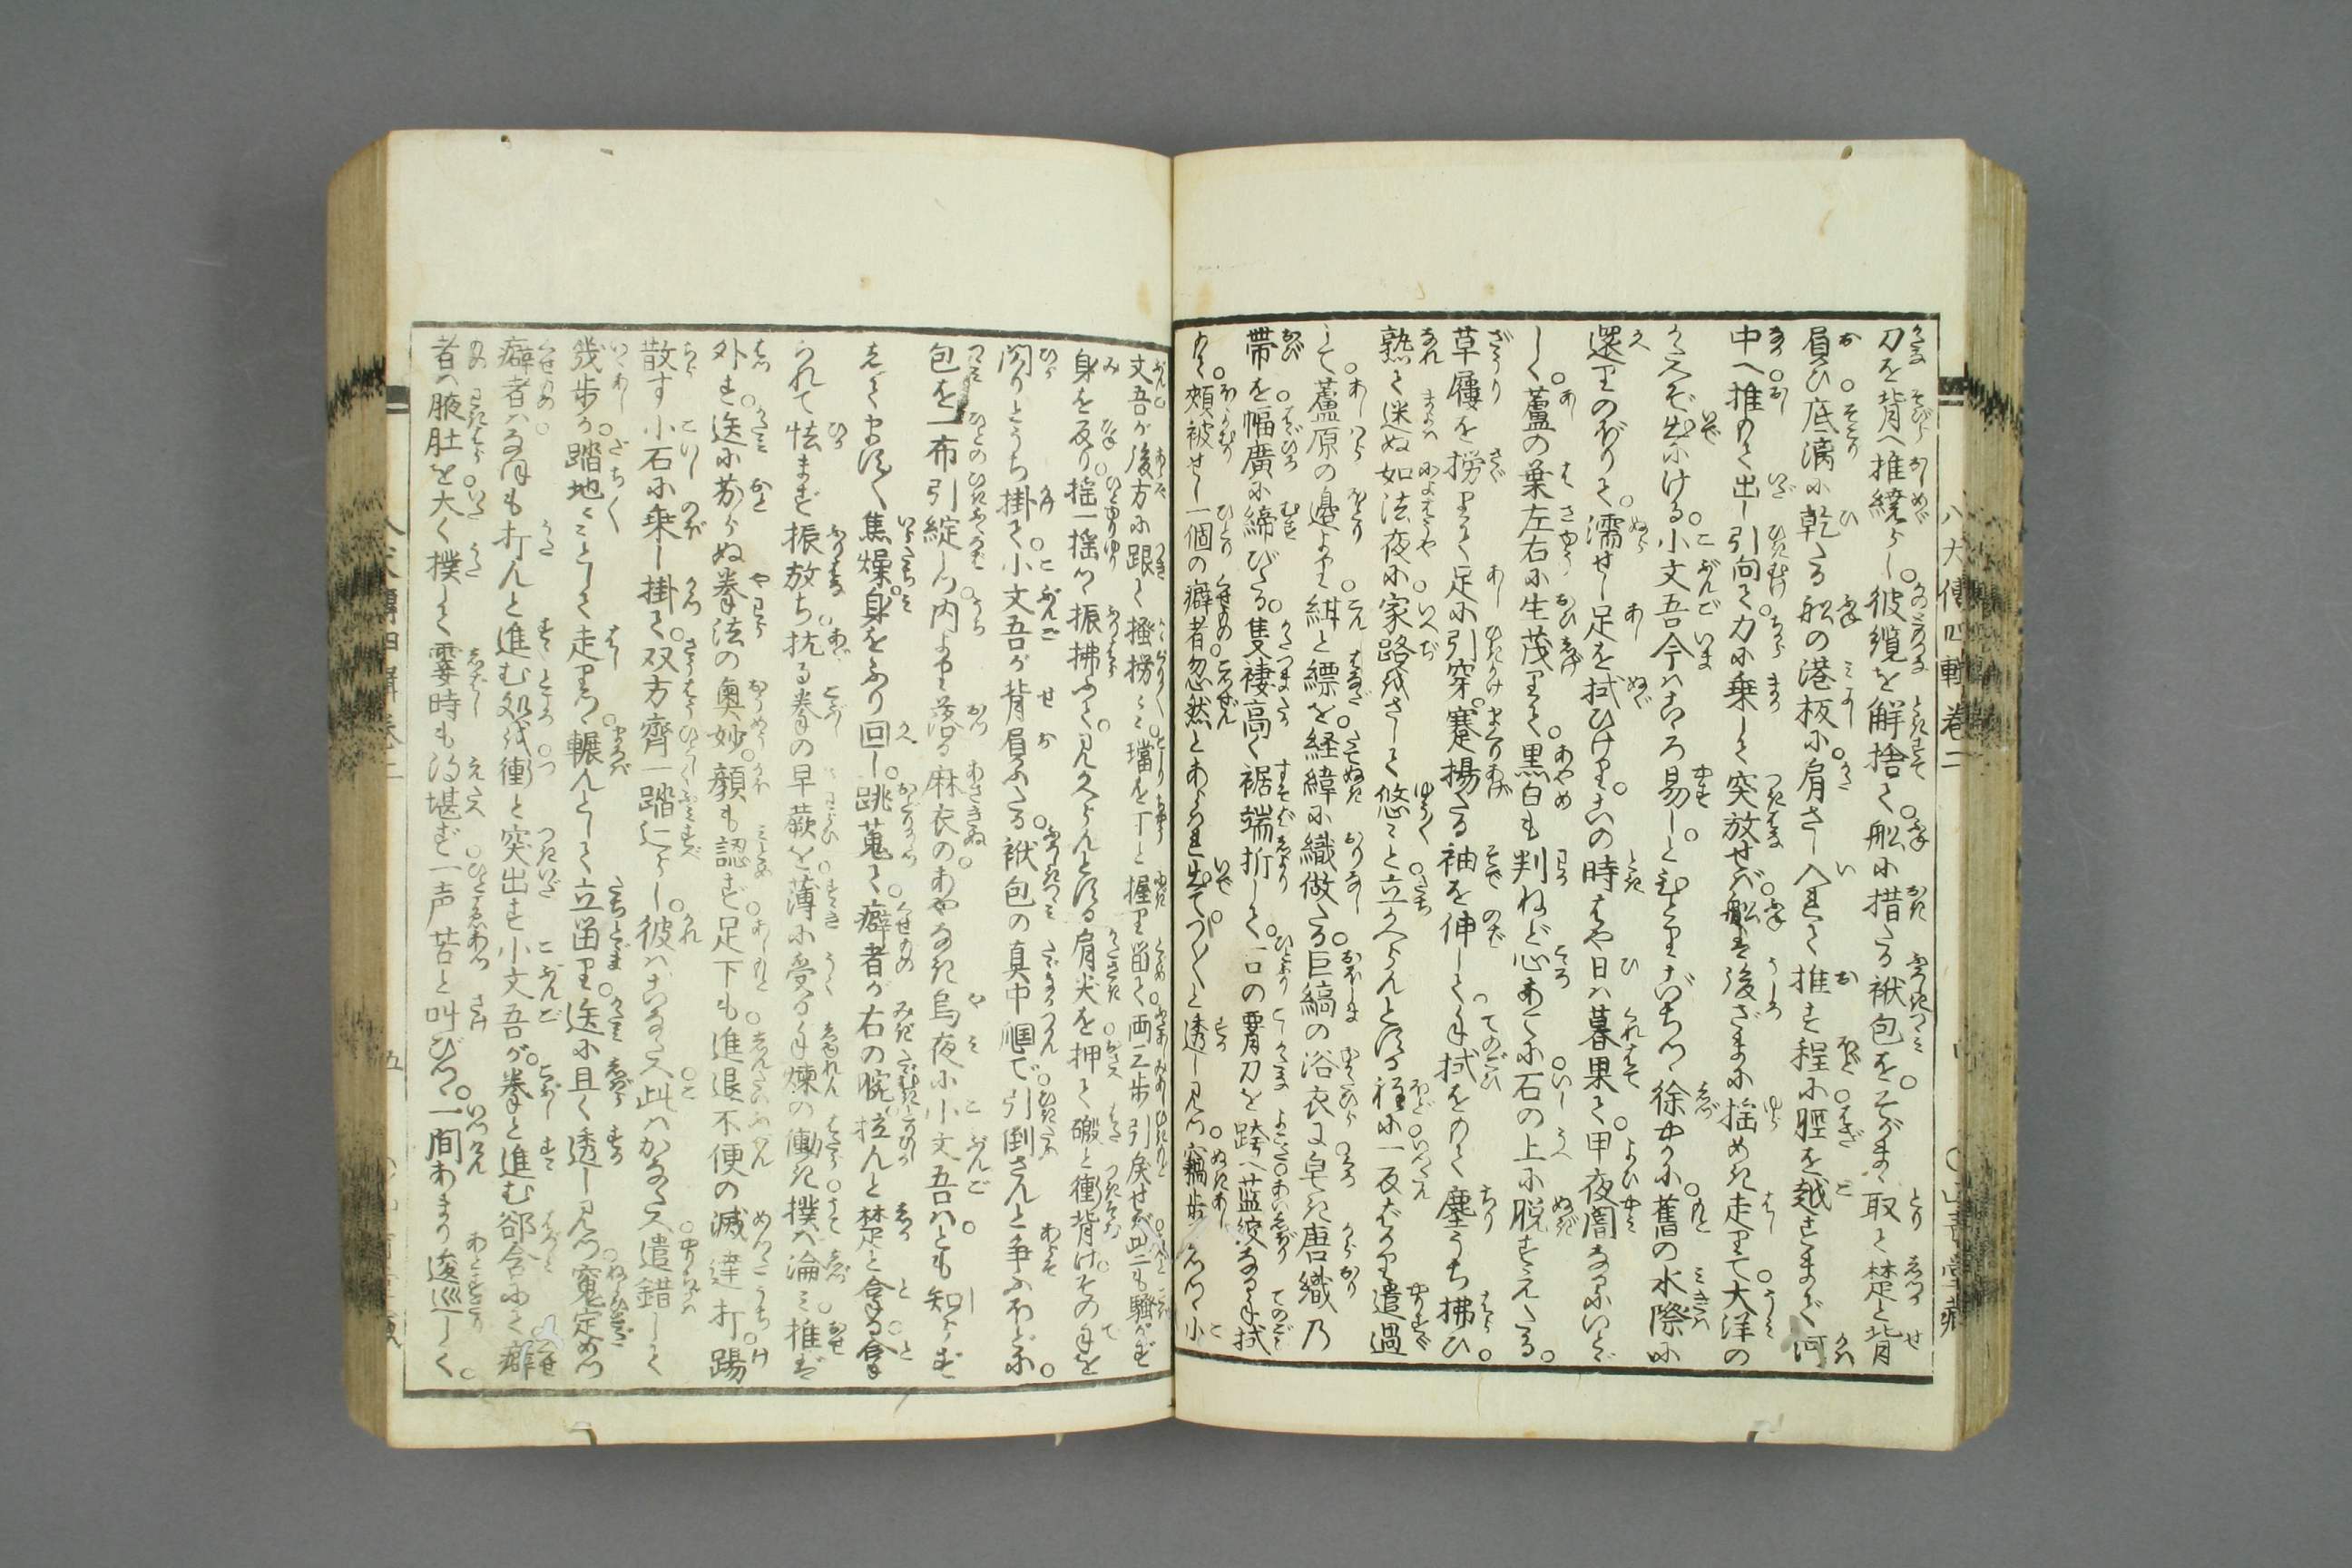 刀を背へ推繞らし彼纜を解捨て舩に措たる袱包をそがまゝ取て楚と背
負ひ底滴に乾たる舩の港板に肩さし入れて推す程に脛を越すまで河
中へ推もて出し引向て力に乗して突放せば舩は後ざまに揺めき走りて大洋の
かたへぞ出にける小文吾今はこゝろ易しとひとりごちつゝ徐やかに舊の水際に
還りのぼりて濡せし足を拭ひけりこの時はや日は暮果て甲夜闇なるにいとゞ
しく蘆の葉左右に生茂りて黒白も判ねど心あてに石の上に脱すえたる
草履を撈りて足に引穿褰揚たる袖を伸して手拭をもて塵うち拂ひ
熟て迷ぬ如法夜に家路をさして悠々と立かへらんとする程に一反ばかり遣過
して蘆原の邉より紺と縹を経緯に織做たる巨縞の浴衣に皂き唐織乃
帯を幅廣に締びたる隻褄高く裾端折して一口の刀を跨へ藍絞なる手拭
もて頬被せし一個の癖者忽然とあらはれ出てつく〳〵と透し見つ竊歩しつゝ小
文吾が後方に跟て掻撈々々璫を丁と握り畄て両三歩引戻せば此も騒がず
身を反り揺一揺つゝ振拂ふて見かへらんとする肩尖を押て礑と衝背けその手を
閃りとうち掛て小文吾が背負ふたる袱包の真中爴で引倒さんと争ふほどに
包を一布引綻しつ内より落る麻衣のあやなき烏夜に小文吾はとも知らず
はやくます〳〵焦燥身をふり回し跳蒐て癖者が右の腕を拉んと楚と合ふ
られて怯まず振放ち抗る拳の早蕨を薄に受る手煉の働き撲ば淪み推ば
外す送に劣らぬ拳法の奥妙顔も認ず足下も進退不便の滅達打踢
散す小石に乗し掛て双方齊一踏辷らし彼はこなたへ此はかなたへ遣錯して
幾歩か踏地々々として走りつゝ輾んとして立畄り送に且く透し見つ窺定めつ
癖者はなほも打んと進む処を衝と突出す小文吾が拳と進む郤含よく癖
者は腋肚を大く撲して霎時も得堪ず一声苦と叫びつゝ一間あまり逡巡して
八犬傳四輯巻二
山青堂藏
八犬傳四輯巻二
五